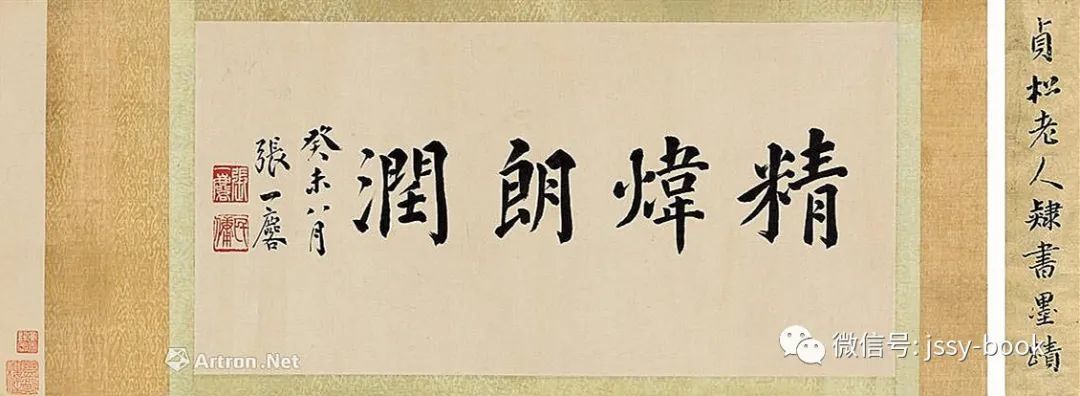 貞松老人隸書墨蹟
精煒朗潤
癸未八月
張一麐
Artron.Net
微信号: jssy-book